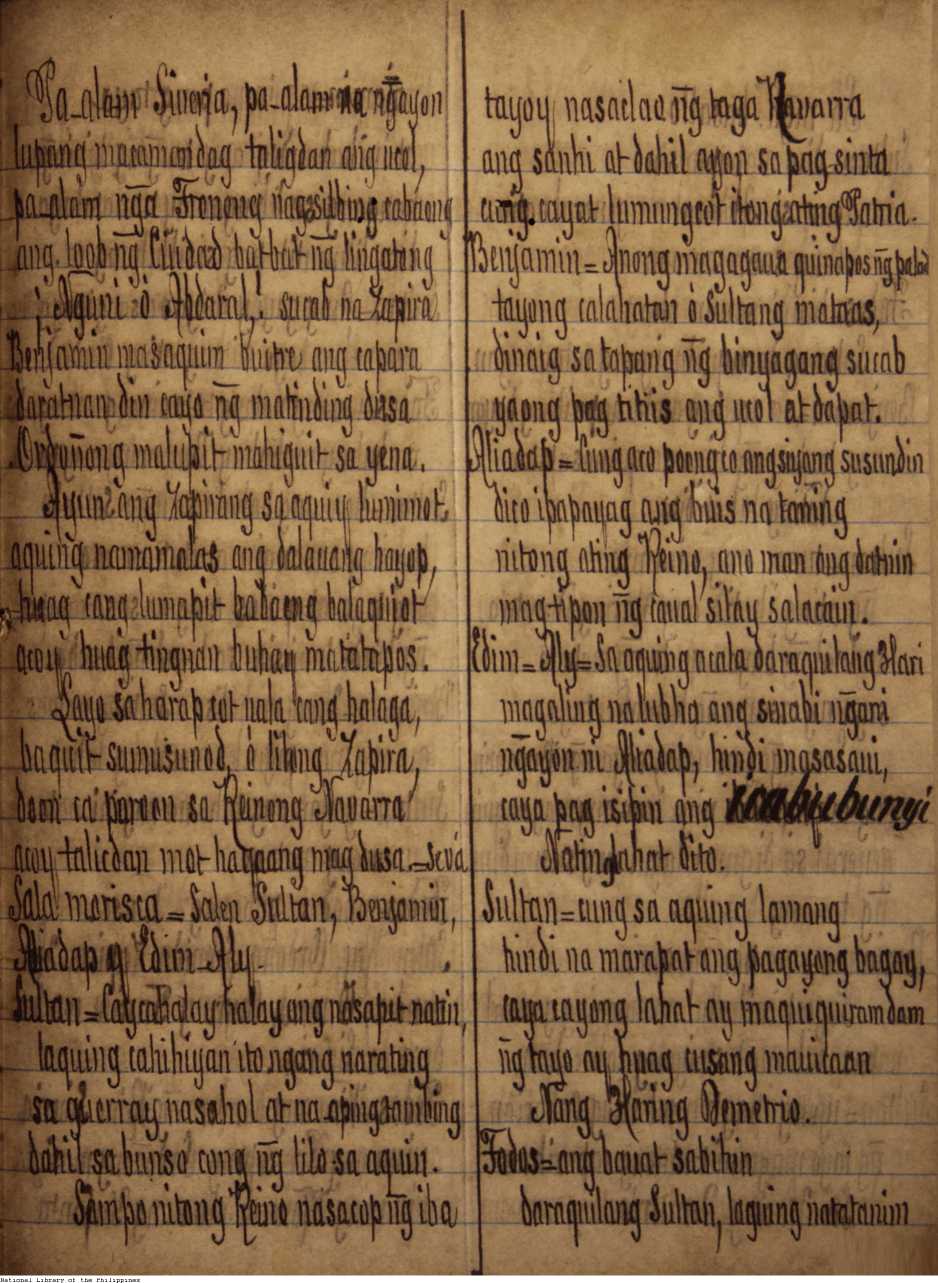 Pa-alam Siveria, pa-alam na ng̃ayon
lupang macamandag taligdan ang ucol,
pa-alam ng̃a Tronong nagsilbing cabaong
ang loob ng̃ Ciudad batbat ng̃ lingatong
¡Ng̃uni ó Abdaral! sucab na Zapira
Benjamin masaquim buitre ang capara
daratnan din cayo ng̃ matinding dusa
Ordoñong malupit mahiguit sa yena.
Ayun ang Zapirang sa aquiy lumimot
aquing namamalas ang dalauang hayop,
huag cang lumapit babaeng balaquiot
acoy huag tingnan buhay matatapos.
Layo sa harap cot uala cang halaga,
baquit sumusunod, ó lilong Zapira,
doon ca paroon sa Reinong Navarra
acoy talicdan mot hayaang mag dusa.=seva
Sala morisca = Salen Sultan, Benjamin,
Aliadap y Edim-Aly.
Sultan = Caycahalay halay ang nasapit natin,
laquing cahihiyan ito ngang narating
sa guerray nasahol at na aping tambing
dahil sa bunso cong ng̃ lilo sa aquin.
Sampo nitong Reino nasacop ng̃ iba
tayoy nasaclao ng̃ taga Navarra
ang sanhi at dahil ayon sa pag-sinta
cung cayat lumungcot itong ating Patria.
Benjamin = Anong magagaua quinapos ng̃ palad
tayong calahatan ó Sultang mataas,
dinaig sa tapang ng̃ binyagang sucab
yaong pag titiis ang ucol at dapat.
Aliadap = Cung aco poeng co ang siyang susundin
dico ipapayag ang buis na taning
nitong ating Reino, ano man ang datnin
mag-tipon ng̃ caual silay salacain.
Edim = Aly = Sa aquing acala daraquilang Hari
magaling na lubha ang sinabi ng̃ani
ng̃ayon ni Aliadap, hindi masasaui,
caya pag isipin ang icabubunyi
Nating lahat dito.
Sultan = cung sa aquing lamang
hindi na marapat ang pagayong bagay,
caya cayong lahat ay maquiquiramdam
ng̃ tayo ay huag cusang mauicaan
Nang Haring Demetrio.
Todos = ang bauat sabihin
daraquilang Sultan, laguing natatanim
National Library of the Philippines